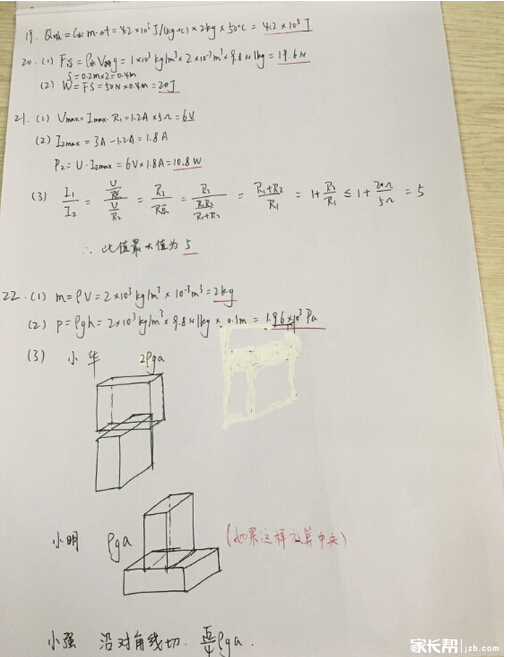 19. Q吸 = C水 m·Δt = 4.2×10³ J/(kg·℃) × 2kg × 50℃ = 4.2×10⁵ J
20. (1) F浮 = ρ水 V排 g = 1×10³ kg/m³ × 2×10⁻³ m³ × 9.8 N/kg = 19.6 N
S = 0.2m×2 = 0.4m
(2) W = FS = 50N × 0.4m = 20J
21. (1) Umax = Imax·R₁ = 1.2A × 5Ω = 6V
(2) I₂max = 3A - 1.2A = 1.8A
P₂ = U·I₂max = 6V × 1.8A = 10.8W
(3) I₁/I₂ = (U/R总)/(U/R₂) = R₂/R总 = R₂/(R₁R₂/(R₁+R₂)) = (R₁+R₂)/R₁ = 1 + R₂/R₁ ≤ 1 + 20Ω/5Ω = 5
∴ 此值最大值为 5
22. (1) m = ρV = 2×10³ kg/m³ × 10⁻³ m³ = 2kg
(2) p = ρgh = 2×10³ kg/m³ × 9.8 N/kg × 0.1m = 1.96×10³ Pa
(3) 小华 2ρga
小明 ρga (如果这样放算中央)
小强 沿对角线切. √2/4 ρga.
家长帮 jzb.com